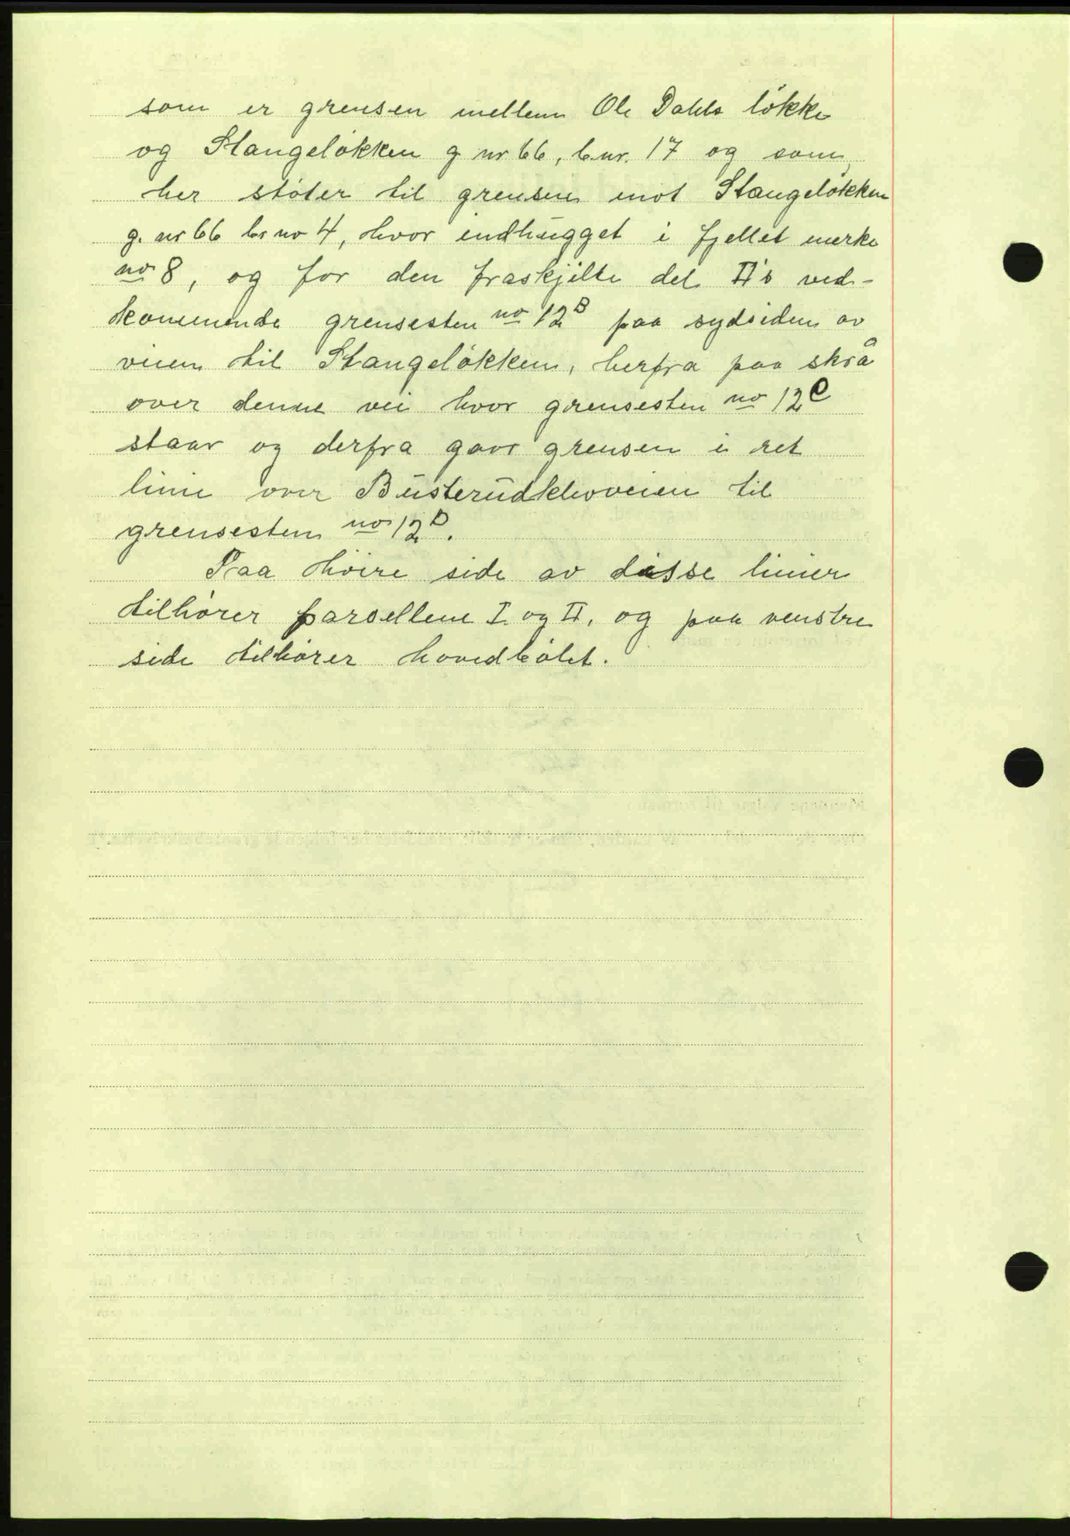 som er grensen mellem Ole Dahls løkke
og Stangeløkken g nr 66, b.nr. 17 og som
her støter til grensen mot Stangeløkken
g. nr 66 br no 4, hvor indhugget i fjellet merke
no 8, og for den fraskjilte del II's ved-
kommende grensesten no 12B paa sydsiden av
veien til Stangeløkken, herfra paa skrå
over denne vei hvor grensesten no 12C
staar og derfra gaar grensen i ret
linie over Busterudkleveien til
grensesten no 12D.
Paa høire side av disse linier
tilhører parsellene I og II, og paa venstre
side tilhører hovedbølet.